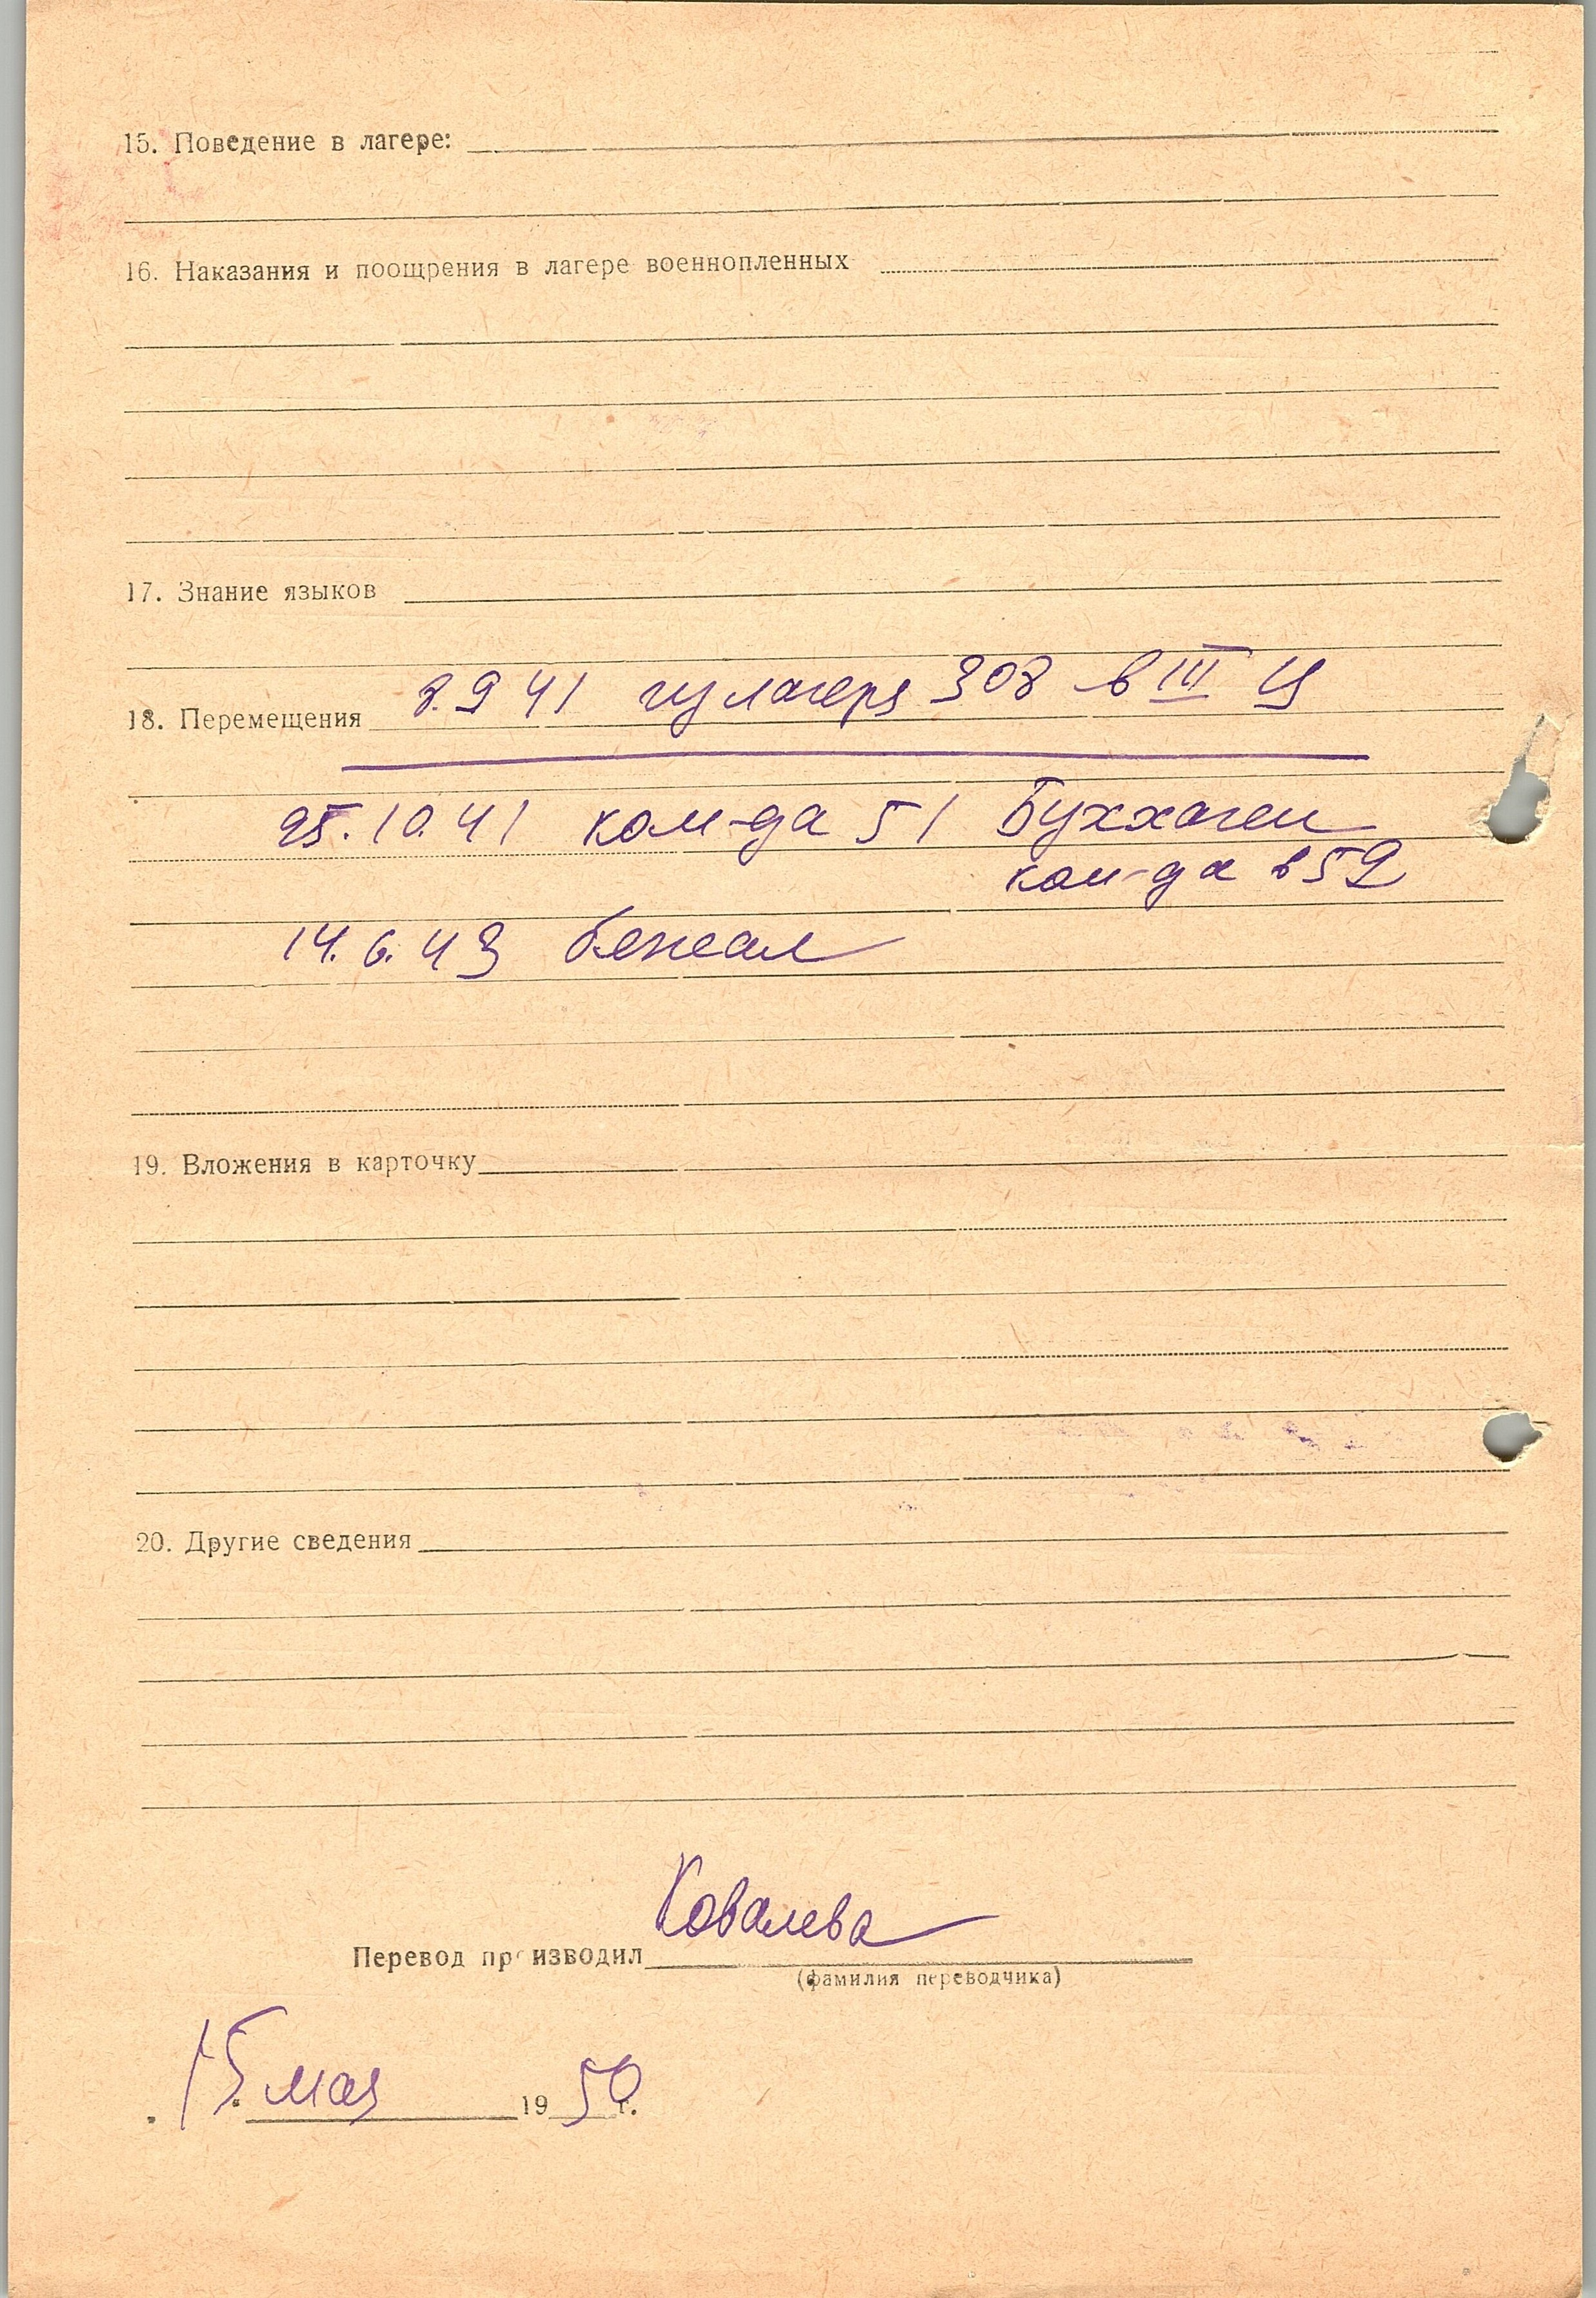 15. Поведение в лагере:
16. Наказания и поощрения в лагере военнопленных
17. Знание языков
18. Перемещения 8.9 41 из лагеря 308 в III Ц
25.10.41 ком-да 51 Буххаген
ком-да в 52
14.6.43 бежал
19. Вложения в карточку
20. Другие сведения
Ковалева
Перевод производил
(фамилия переводчика)
15. мая 1950 г.